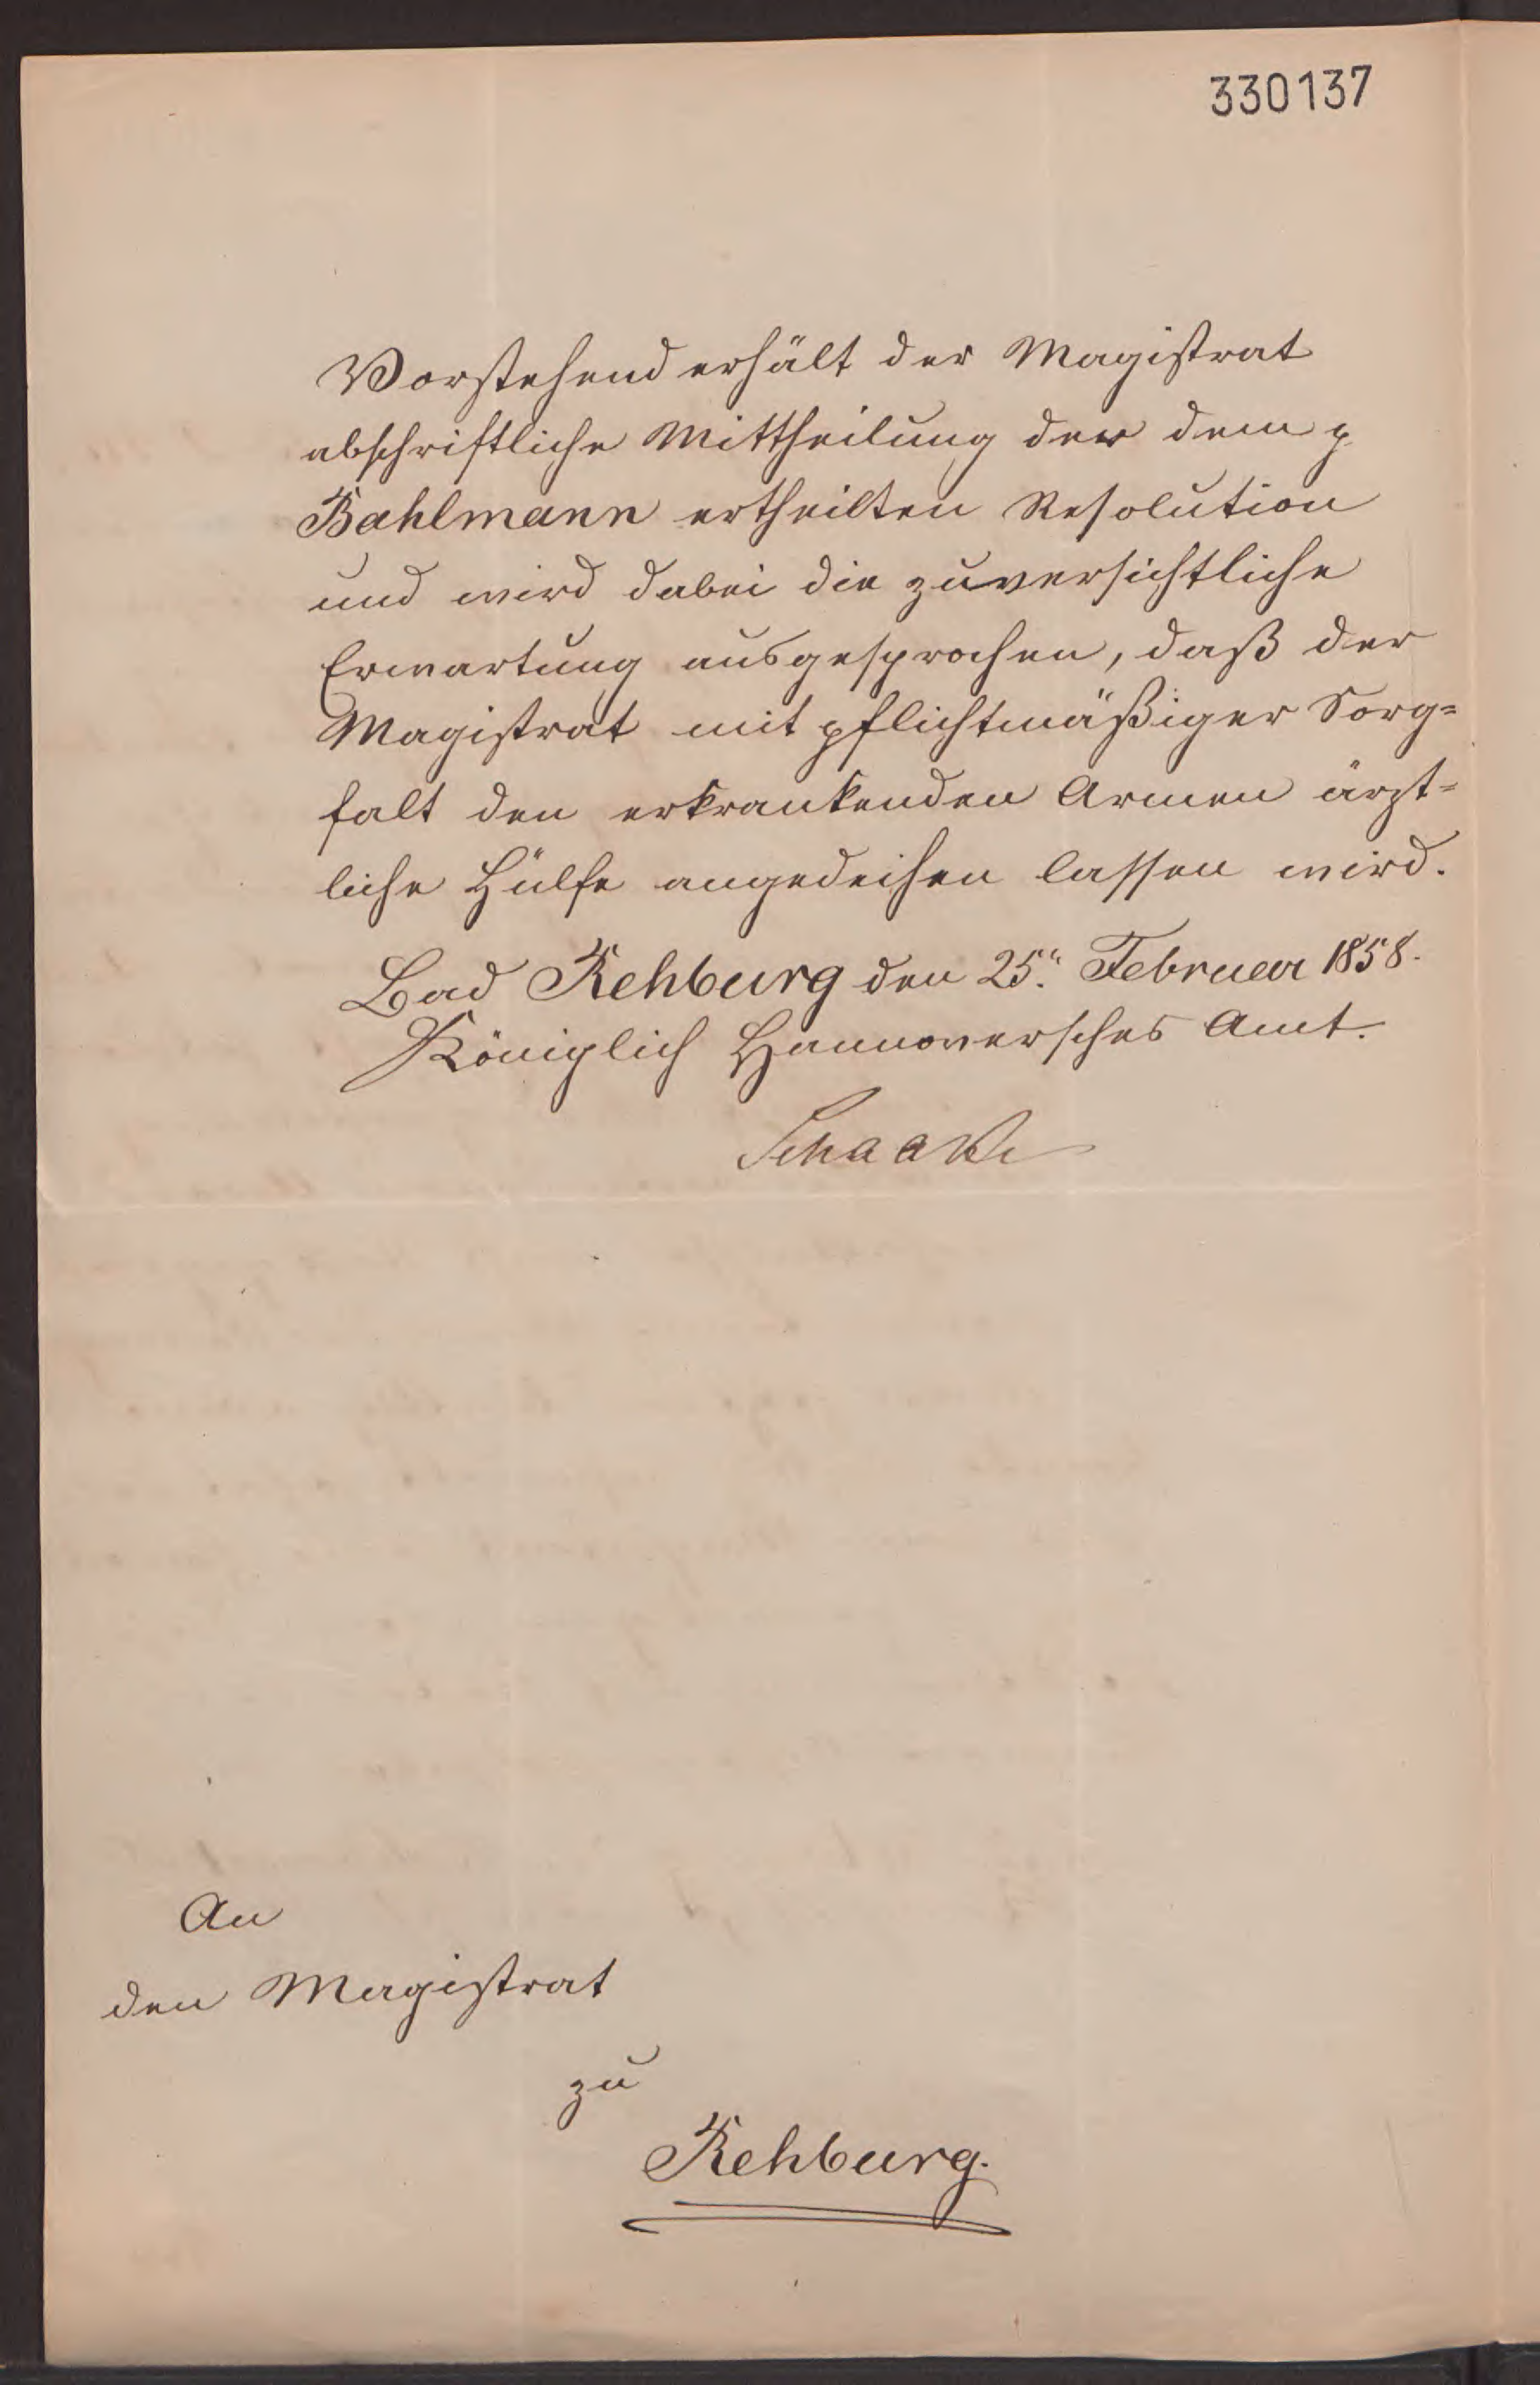 330137
Vorstehend erhält der Magistrat
abschriftliche Mittheilung der dem p
Bahlmann ertheilten Resolution
und wird dabei die zuversichtliche
Erwartung ausgesprochen, daß der
Magistrat mit pflichtmäßiger Sorg=
falt den erkrankenden Armen ärzt=
liche Hülfe angedeihen lassen wird.
Bad Rehburg den 25. Februar 1858.
Königlich Hannoversches Amt.
Schaake
An
den Magistrat
zu
Rehburg.